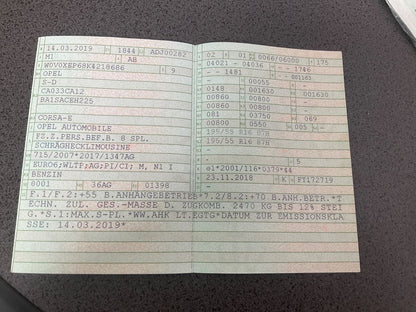 14.03.2019 1844 ADJ00282
M1 AB
W0V0XEP68K4218686 9
OPEL
S-D
CA033CA12
BA1SACEH225
CORSA-E
OPEL AUTOMOBILE
FZ.Z.PERS.BEF.B. 8 SPL.
SCHRÄGHECKLIMOUSINE
715/2007*2017/1347AG
EURO6;WLTP;AG;PI/CI; M, N1 I
BENZIN
0001 36AG 01398
02 01 0066/06000 175
04021 - 04036 - - 1746
- - 1481 - - 001165
00055 -
0148 001630 001630
00860 00800 -
00860 00800 -
081 03750 069
00800 0550 005 -
195/55 R16 87H
195/55 R16 87H
- 5
e1*2001/116*0379*44
23.11.2018 K FY172719
F.1/F.2:+55 B.ANHÄNGEBETRIEB*7.2/8.2:+70 B.ANH.BETR.*T
ECHN. ZUL. GES.-MASSE D. ZUGKOMB. 2470 KG BIS 12% STEI
G.*S.1:MAX.S-PL. *WW.AHK LT.EGTG*DATUM ZUR EMISSIONSKLA
SSE: 14.03.2019*